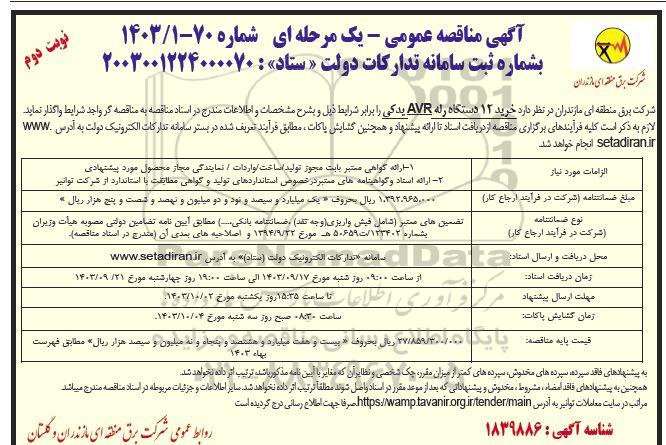 آگهی مناقصه عمومی – یک مرحله ای  شماره ۷۰-۱۴۰۳/۱
بشماره ثبت سامانه تدارکات دولت « ستاد» : ۲۰۰۳۰۰۱۲۲۴۰۰۰۰۷۰
نوبت دوم
شرکت برق منطقه ای مازندران
شرکت برق منطقه ای مازندران در نظر دارد خرید ۱۲ دستگاه رله AVR یدکی را برابر شرایط ذیل و بشرح مشخصات و اطلاعات مندرج در اسناد مناقصه به مناقصه گر واجد شرایط واگذار نماید.
لازم به ذکر است کلیه فرآیندهای برگزاری مناقصه از دریافت اسناد تا ارائه پیشنهاد و همچنین گشایش پاکات ، مطابق فرآیند تعریف شده در بستر سامانه تدارکات الکترونیک دولت به آدرس WWW.
setadiran.ir انجام خواهد شد.
الزامات مورد نیاز
۱-ارائه گواهی معتبر بابت مجوز تولید/ساخت/واردات / نمایندگی مجاز محصول مورد پیشنهادی
۲- ارائه اسناد وگواهینامه های معتبردرخصوص استانداردهای تولید و گواهی مطابقت با استاندارد از شرکت توانیر
مبلغ ضمانتنامه (شرکت در فرآیند ارجاع کار)
۱.۳۹۲.۹۶۵.۰۰۰ ریال بحروف « یک میلیارد و سیصد و نود و دو میلیون و نهصد و شصت و پنج هزار ریال »
نوع ضمانتنامه
(شرکت در فرآیند ارجاع کار)
تضمین های معتبر (شامل فیش واریزی(وجه نقد) ،ضمانتنامه بانکی،....) مطابق آیین نامه تضامین دولتی مصوبه هیأت وزیران
بشماره ۱۲۳۴۰۲/ت۵۰۶۵۹ هـ مورخ ۱۳۹۴/۹/۲۲ و اصلاحیه های بعدی آن (مندرج در اسناد مناقصه).
محل دریافت و ارسال اسناد:
سامانه «تدارکات الکترونیک دولت (ستاد)» به آدرس www.setadiran.ir
زمان دریافت اسناد:
از ساعت ۰۹:۰۰ روز شنبه مورخ ۱۴۰۳/۰۹/۱۷ الی ساعت ۱۹:۰۰ روز چهارشنبه مورخ ۲۱/ ۱۴۰۳/۰۹
مهلت ارسال پیشنهاد
تا ساعت ۱۵:۳۵روز یکشنبه مورخ ۱۴۰۳/۱۰/۰۲
زمان گشایش پاکات:
ساعت ۰۸:۳۰ صبح روز سه شنبه مورخ ۱۴۰۳/۱۰/۰۴
قیمت پایه مناقصه:
۲۷/۸۵۹/۳۰۰/۰۰۰ ریال بحروف « بیست و هفت میلیارد و هشتصد و پنجاه و نه میلیون و سیصد هزار ریال» مطابق فهرست
بهاء ۱۴۰۳
به پیشنهادهای فاقد سپرده، سپرده های مخدوش، سپرده های کمتر از میزان مقرر، چک شخصی و نظایر آن که مغایر با آیین نامه مذکور باشد، ترتیب اثر داده نخواهد شد.
همچنین به پیشنهادهای فاقد امضاء ، مشروط ، مخدوش و پیشنهاداتی که بعد از موعد مقرر در اسناد واصل شوند مطلقاً ترتیب اثر داده نخواهد شد. سایر اطلاعات و جزئیات مربوطه در اسناد مناقصه مندرج میباشد
مراتب در سایت معاملات توانیر به آدرس https://wamp.tavanir.org.ir/tender/main صرفا جهت اطلاع رسانی درج گردیده است
شناسه آگهی : ۱۸۳۹۸۸۶
روابط عمومی شرکت برق منطقه ای مازندران و گلستان